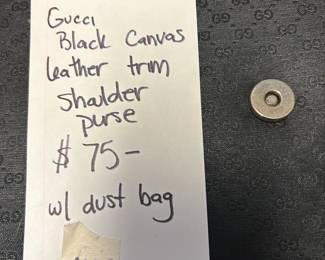 Gucci
Black Canvas
leather trim
shoulder
purse
$75-
w/ dust bag